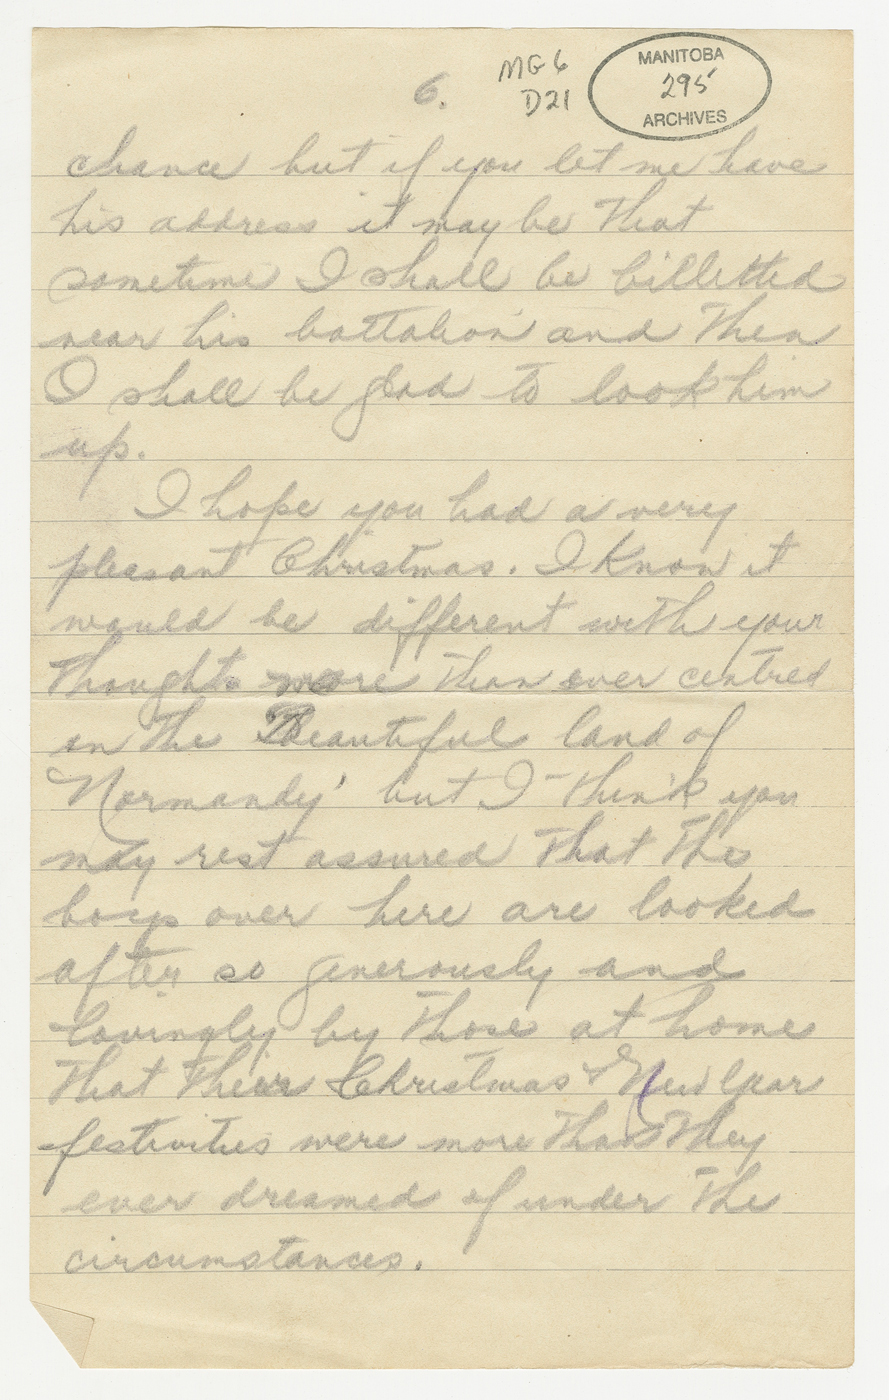 6.
MG 6
D21
MANITOBA
295
ARCHIVES
chance but if you let me have
his address it may be that
sometime I shall be billetted
near his battalion and then
I shall be glad to look him
up.
I hope you had a very
pleasant Christmas. I know it
would be different with your
thoughts more than ever centred
on the Beautiful land of
Normandy' but I think you
may rest assured that the
boys over here are looked
after so generously and
lovingly by those at home
that their Christmas & New Year
festivities were more than they
ever dreamed of under the
circumstances.